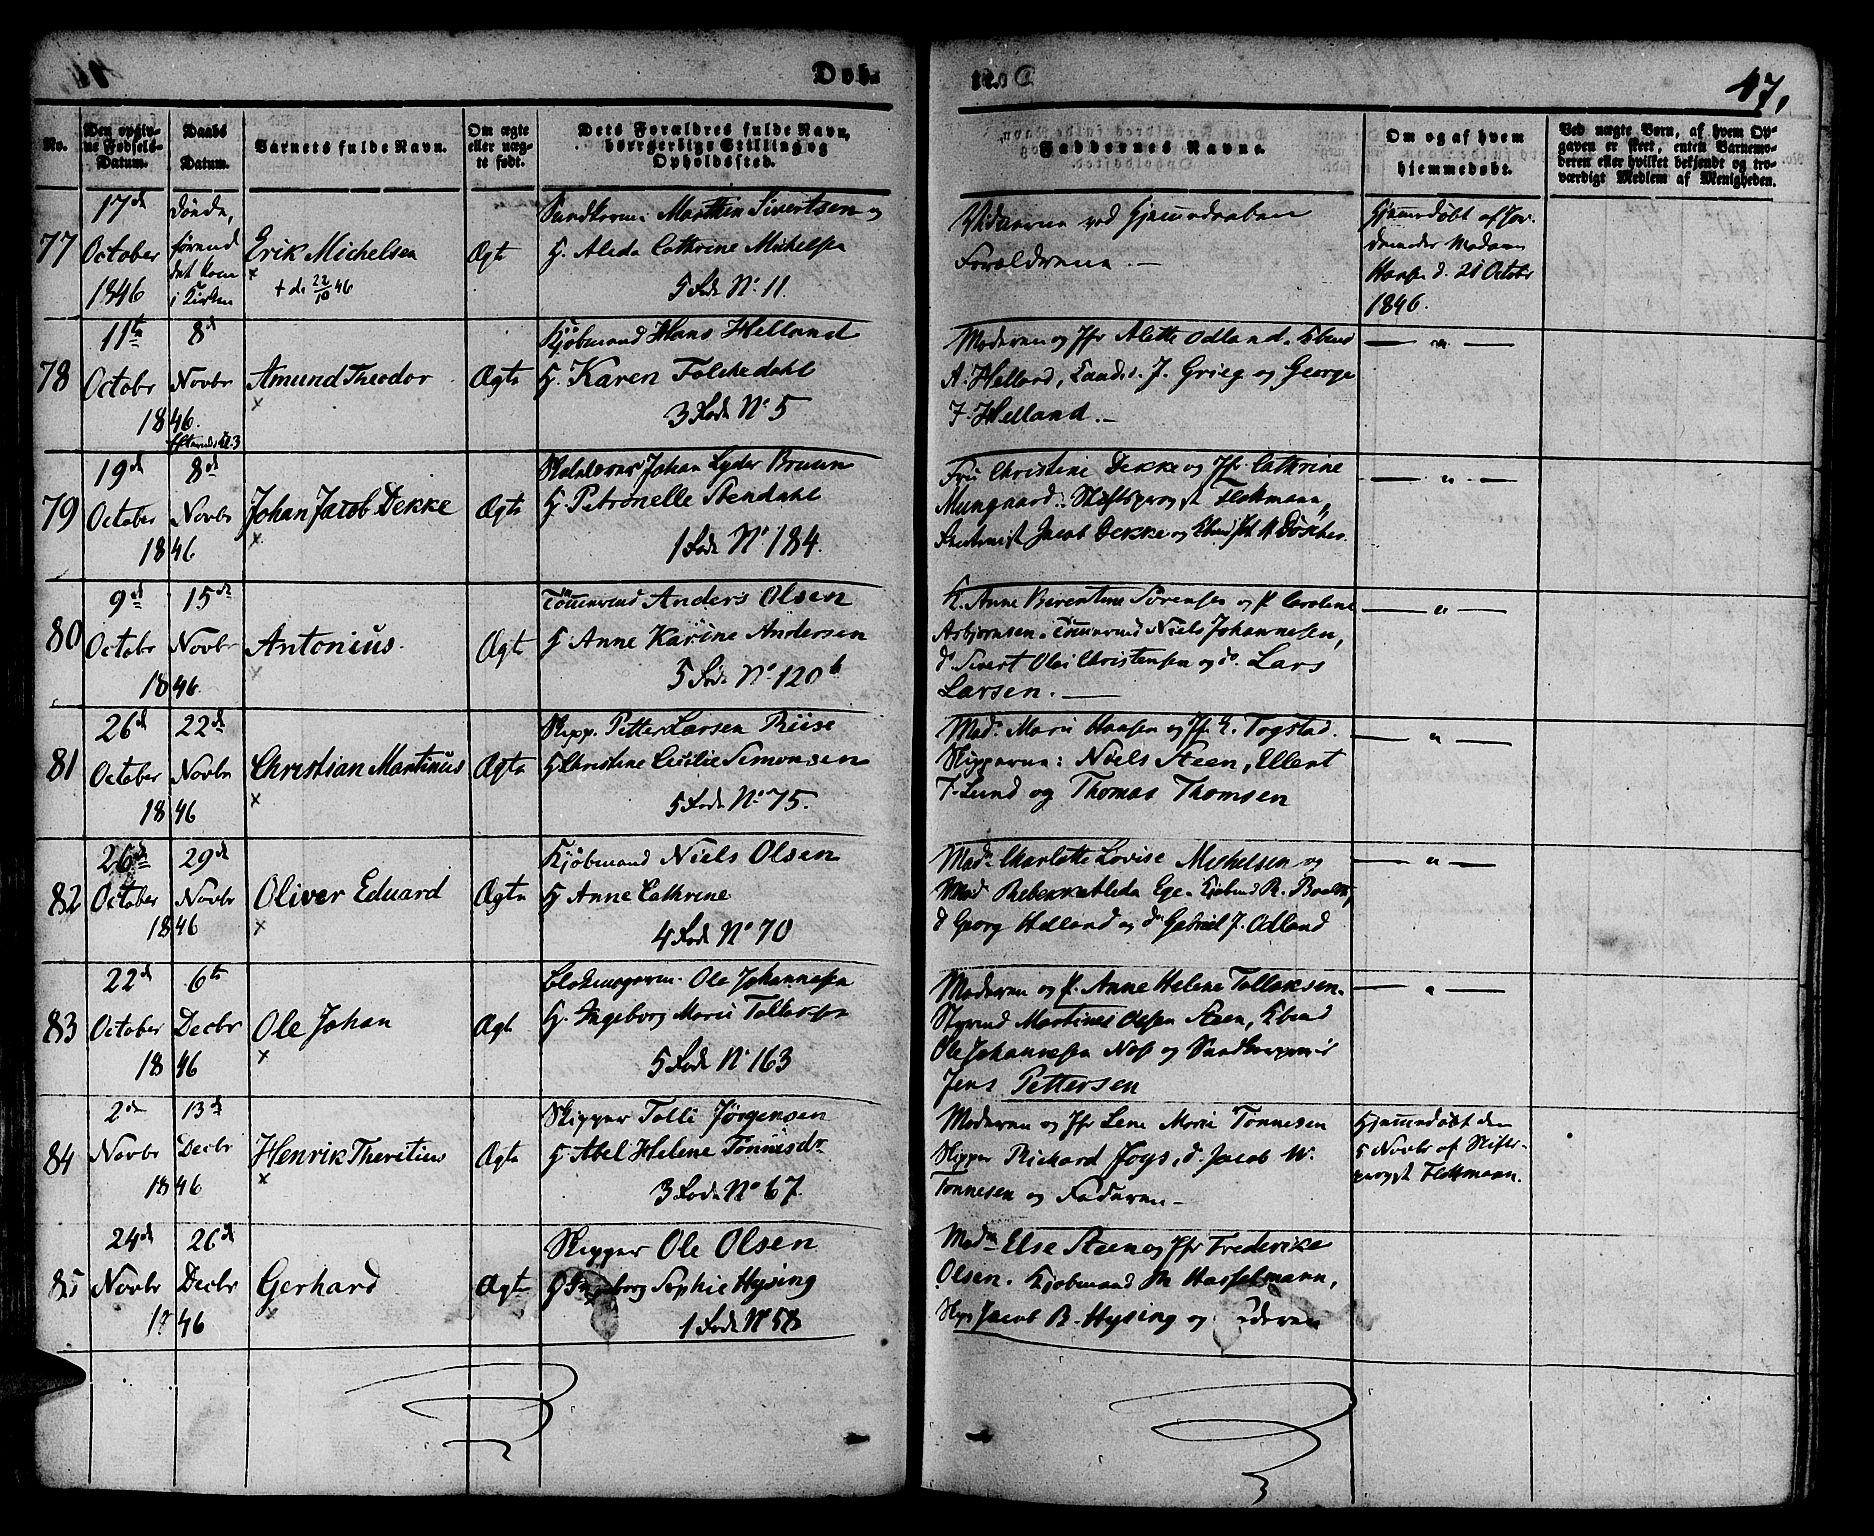 Døb.
47.
No.
Den opgiv-
ne Fødsels-
Datum.
Daabs
Datum.
Barnets fulde Navn.
Om ægte
eller uæg-
te født.
Dets Forældres fulde Navn,
borgerlige Stilling og
Opholdssted.
Faddernes Navne.
Om og af hvem
hjemmedøbt.
Ved uægte Børn, af hvem Op-
gaven er skeet, enten Barnemo-
deren eller hvilket bekjendt og tro-
værdigt Medlem af Menigheden.
77
17de
October
1846
Døde,
førend
det kom
i Kirken
Erik Michelsen
+ d. 22/10 46
Ægte
Marthin Sivertsen og
H. Aleda Cathrine Michelsen
5 Rode No. 11.
Vidnerne ved Hjemmedaaben
Forældrene. —
Hjemmedøbt af Jor-
demoder Madam
d. 21 October
1846.
78
11te
October
8de
Novbr
1846.
Efterm. Kl. 3
Amund Theodor
Ægte
Kjøbmand Hans Helland
H. Karen Folkedahl
3 Rode No. 5
Moderen og Jfr Alette Odland. Kbmd
A. Helland, Candid. J. Grieg og George
F. Helland. —
79
19de
October
8de
Novbr
1846
Johan Jacob Dekke
Ægte
Johan Lyder Bruun
H Petronelle Stendahl
1 Rode No. 184.
Fru Christine Dekke og Jfr Cathrine
Mungaard. Stiftsprovst Flottmann,
Jacob Dekke og
80
9de
October
15de
Novbr
1846.
Antonius.
Ægte
Tømmermd Anders Olsen
H Anne Karine Andersen
5 Rode No. 120b
K. Anne Berentine Sørensen og P. Caroline
Asbjørnsen. Tømmermd Niels Johannesen,
do Sivert Olai Christensen og do. Lars
Larsen. —
81
26de
October
22de
Novbr
1846
Christian Martinus
Ægte
Skipp. Petter Larsen Riise
H Christine Cecilie Simonsen
5 Rode No. 75.
Mad. Marie Hansen og Jfr. E. Togstad.
Skipperne: Niels Steen, Ellert
F. Lund og Thomas Thomsen
82
26de
October
29de
Novbr
1846
Oliver Eduard
Ægte
Kjøbmand Niels Olsen
H Anne Cathrine
4 Rode No. 70
Mad. Charlotte Lovise Michelsen og
Mad Rebekka Aleda Ege. Kjøbmd R.
do Georg Helland og do Gabriel J. Odland
83
22de
October
6te
Decbr
1846
Ole Johan
Ægte
Blokmager Ole Johannesen
H. Ingeborg Marie Tollaksen
5 Rode No. 163
Moderen og P. Anne Helene Tollaksen.
Styrmd Martinus Olsen Steen, Kbmd
Ole Johannesen Næs og
Jens Pettersen
84
2den
Novbr
13de
Decbr
1846
Henrik Theritius
Ægte
Skipper Tolli Jørgensen
H Abel Helene Tønnisdr
3 Rode No. 67.
Moderen og Jfr Lene Marie Tønnesen
Skipper Richard Foys, do. Jacob W.
Tønnesen og Faderen —
Hjemmedøbt den
5 Novbr af Stifts-
provst Flottmann.
85
24de
Novbr
26de
Decbr
1846
Gerhard
Ægte
Skipper Ole Olsen
H Ingeborg Sophie Hysing
1 Rode No 58
Madm Else Steen og Jfr Frederike
Olsen. Kjøbmand M Hasselmann,
Skipp Jacob B. Hysing og Faderen